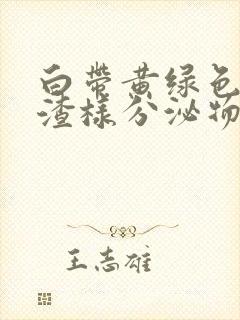 白带黄绿色
渣样分泌物
王志雄